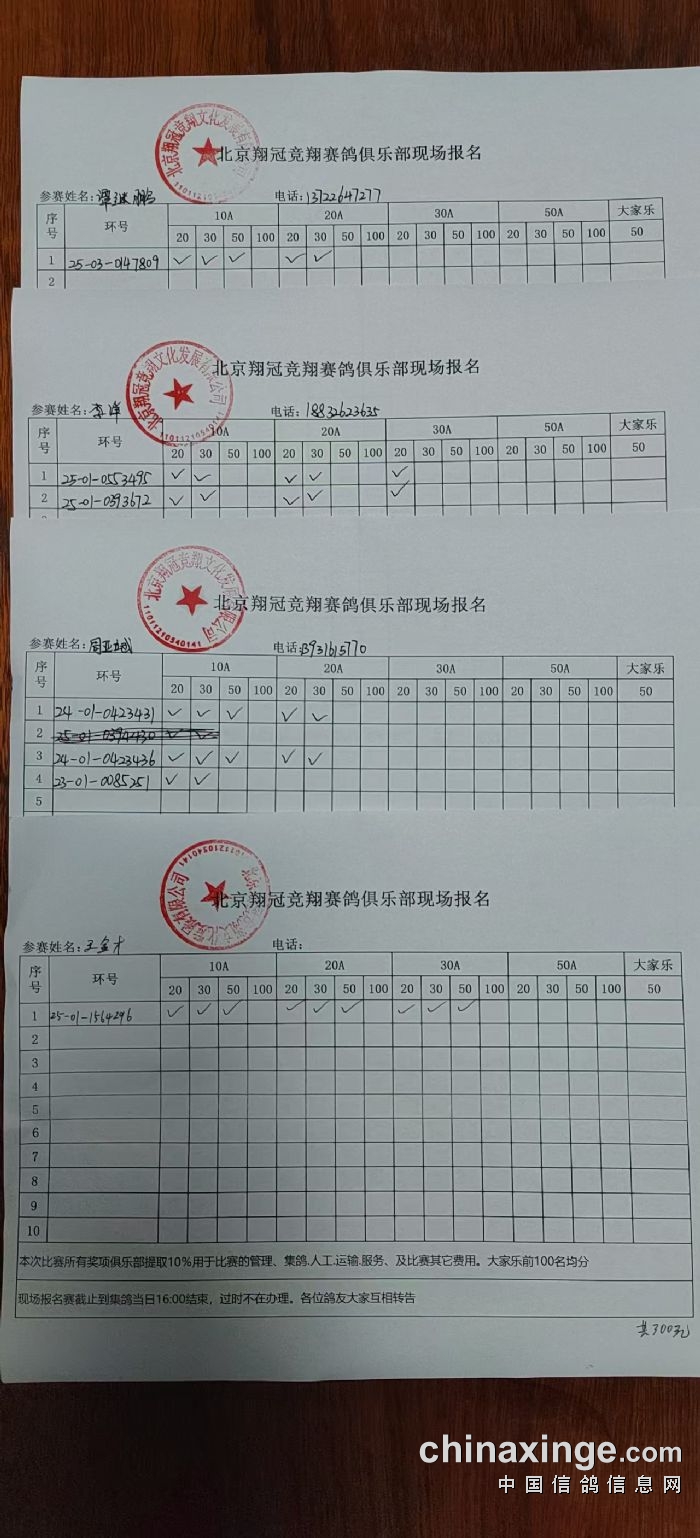 北京翔冠竞翔文化发展有
110112105
北京翔冠竞翔赛鸽俱乐部现场报名
参赛姓名: 鹏 电话: 13722647277
序号 环号 10A 20A 30A 50A 大家乐
20 30 50 100 20 30 50 100 20 30 50 100 20 30 50 100 50
1 25-03-0147809 ✓ ✓ ✓ ✓ ✓
2
北京翔冠竞翔文化发展有限公司
11011210540141
北京翔冠竞翔赛鸽俱乐部现场报名
参赛姓名: 李洋 电话: 18832623635
序号 环号 10A 20A 30A 50A 大家乐
20 30 50 100 20 30 50 100 20 30 50 100 20 30 50 100 50
1 25-01-0553495 ✓ ✓ ✓ ✓ ✓
2 25-01-0393672 ✓ ✓ ✓ ✓ ✓
北京翔冠竞翔文化发展有限公司
11011210540141
北京翔冠竞翔赛鸽俱乐部现场报名
参赛姓名: 周亚 电话: 13931615770
序号 环号 10A 20A 30A 50A 大家乐
20 30 50 100 20 30 50 100 20 30 50 100 20 30 50 100 50
1 24-01-0423431 ✓ ✓ ✓ ✓ ✓
2 25-01-0394430 ✓ ✓
3 24-01-0423436 ✓ ✓ ✓ ✓ ✓
4 23-01-0085251 ✓ ✓
5
北京翔冠竞翔文化发展有限公司
11011210540141
北京翔冠竞翔赛鸽俱乐部现场报名
参赛姓名: 王金才 电话:
序号 环号 10A 20A 30A 50A 大家乐
20 30 50 100 20 30 50 100 20 30 50 100 20 30 50 100 50
1 25-01-1564296 ✓ ✓ ✓ ✓ ✓ ✓ ✓ ✓ ✓
2
3
4
5
6
7
8
9
10
本次比赛所有奖项俱乐部提取10%用于比赛的管理、集鸽.人工.运输.服务、及比赛其它费用。大家乐前100名均分
现场报名赛截止到集鸽当日16:00结束，过时不在办理。各位鸽友大家互相转告
共300元
chinaxinge.com
中国信鸽信息网